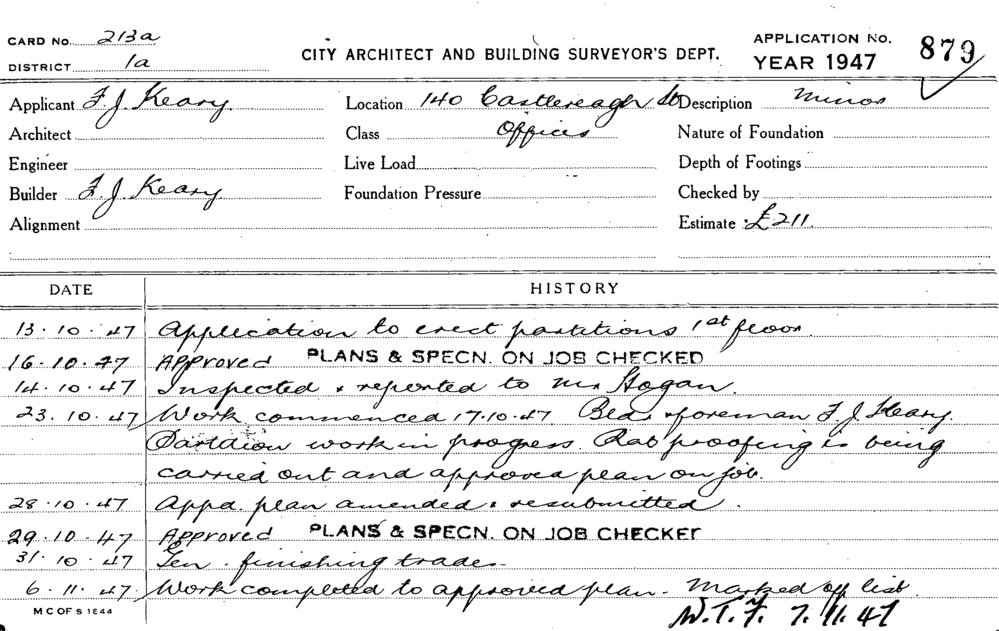 CARD No. 213a
DISTRICT 1a
CITY ARCHITECT AND BUILDING SURVEYOR'S DEPT.
APPLICATION No. 879
YEAR 1947
Applicant F. J. Keary
Location 140 Castlereagh St
Description Minor
Architect
Class Offices
Nature of Foundation
Engineer
Live Load
Depth of Footings
Builder F. J. Keary
Foundation Pressure
Checked by
Alignment
Estimate £211.
DATE HISTORY
13.10.47 Application to erect partitions 1st floor
16.10.47 Approved PLANS & SPECN. ON JOB CHECKED
14.10.47 Inspected & reported to Mr Hogan.
23.10.47 Work commenced 17.10.47 Bldr & foreman F. J. Keary.
Partition work in progress. Rat proofing is being
carried out and approved plan on job.
28.10.47 Appd. plan amended & resubmitted.
29.10.47 Approved PLANS & SPECN. ON JOB CHECKED
31.10.47 Gen. finishing trades.
6.11.47 Work completed to approved plan. Marked off list
M C OF S 1844
W.T.F. 7.11.47